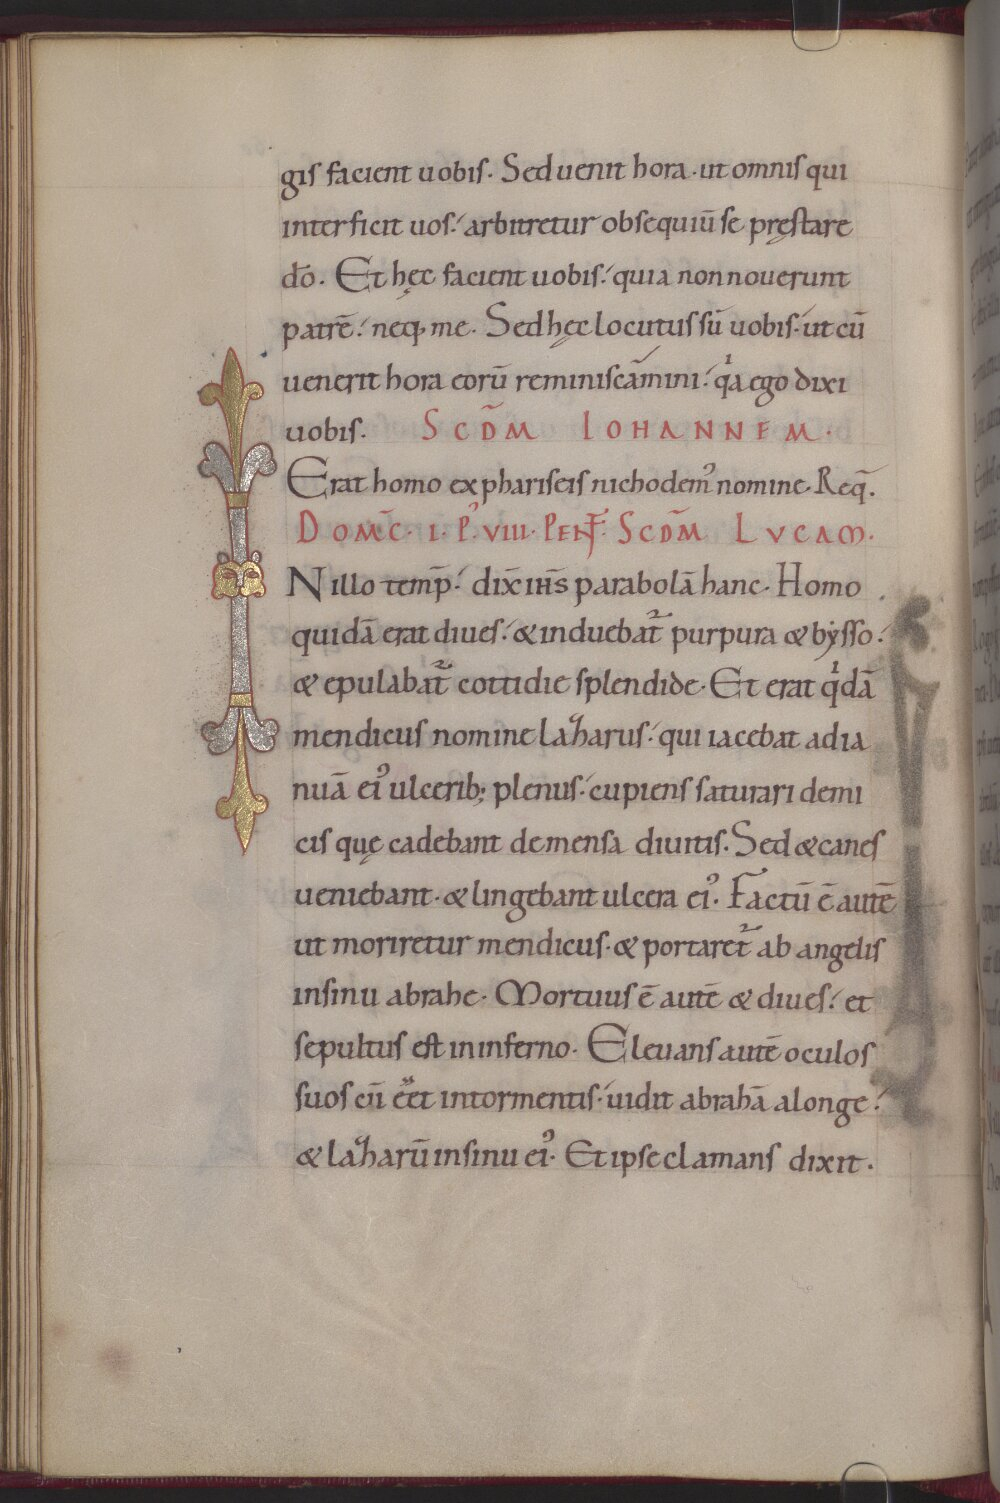 gis facient uobis. Sed uenit hora. ut omnis qui
interficit uos. arbitretur obsequiū se pręstare
dō. Et hęc facient uobis. quia non nouerunt
patrē. neq; me. Sed hęc locutus sū uobis. ut cū
uenerit hora eorū reminiscamini. qͥa ego dixi
uobis. SCD̄M IOHANNEM.
Erat homo ex phariseis nichodemꝰ nomine. Req̄.
DOM̄C. I. Pꝰ. VIII. PENT̄. SCD̄M LVCAM.
N illo temp̄. dix̄ ih̄s parabolā hanc. Homo
quidā erat diues. & induebat᷑ purpura & bẏsso.
& epulabat᷑ cottidie splendide. Et erat qͥdā
mendicus nomine lazarus. qui iacebat ad ia
nuā eiꝰ ulcerib; plenus. cupiens saturari de mi
cis quę cadebant de mensa diuitis. Sed & canes
ueniebant. & lingebant ulcera eiꝰ. Factū ē autē
ut moriretur mendicus. & portaret᷑ ab angelis
in sinu abrahe. Mortuus ē autē & diues. et
sepultus est in inferno. Eleuans autē oculos
suos cū eēt in tormentis. uidit abrahā a longe.
& lazarū in sinu eiꝰ. Et ipse clamans dixit.